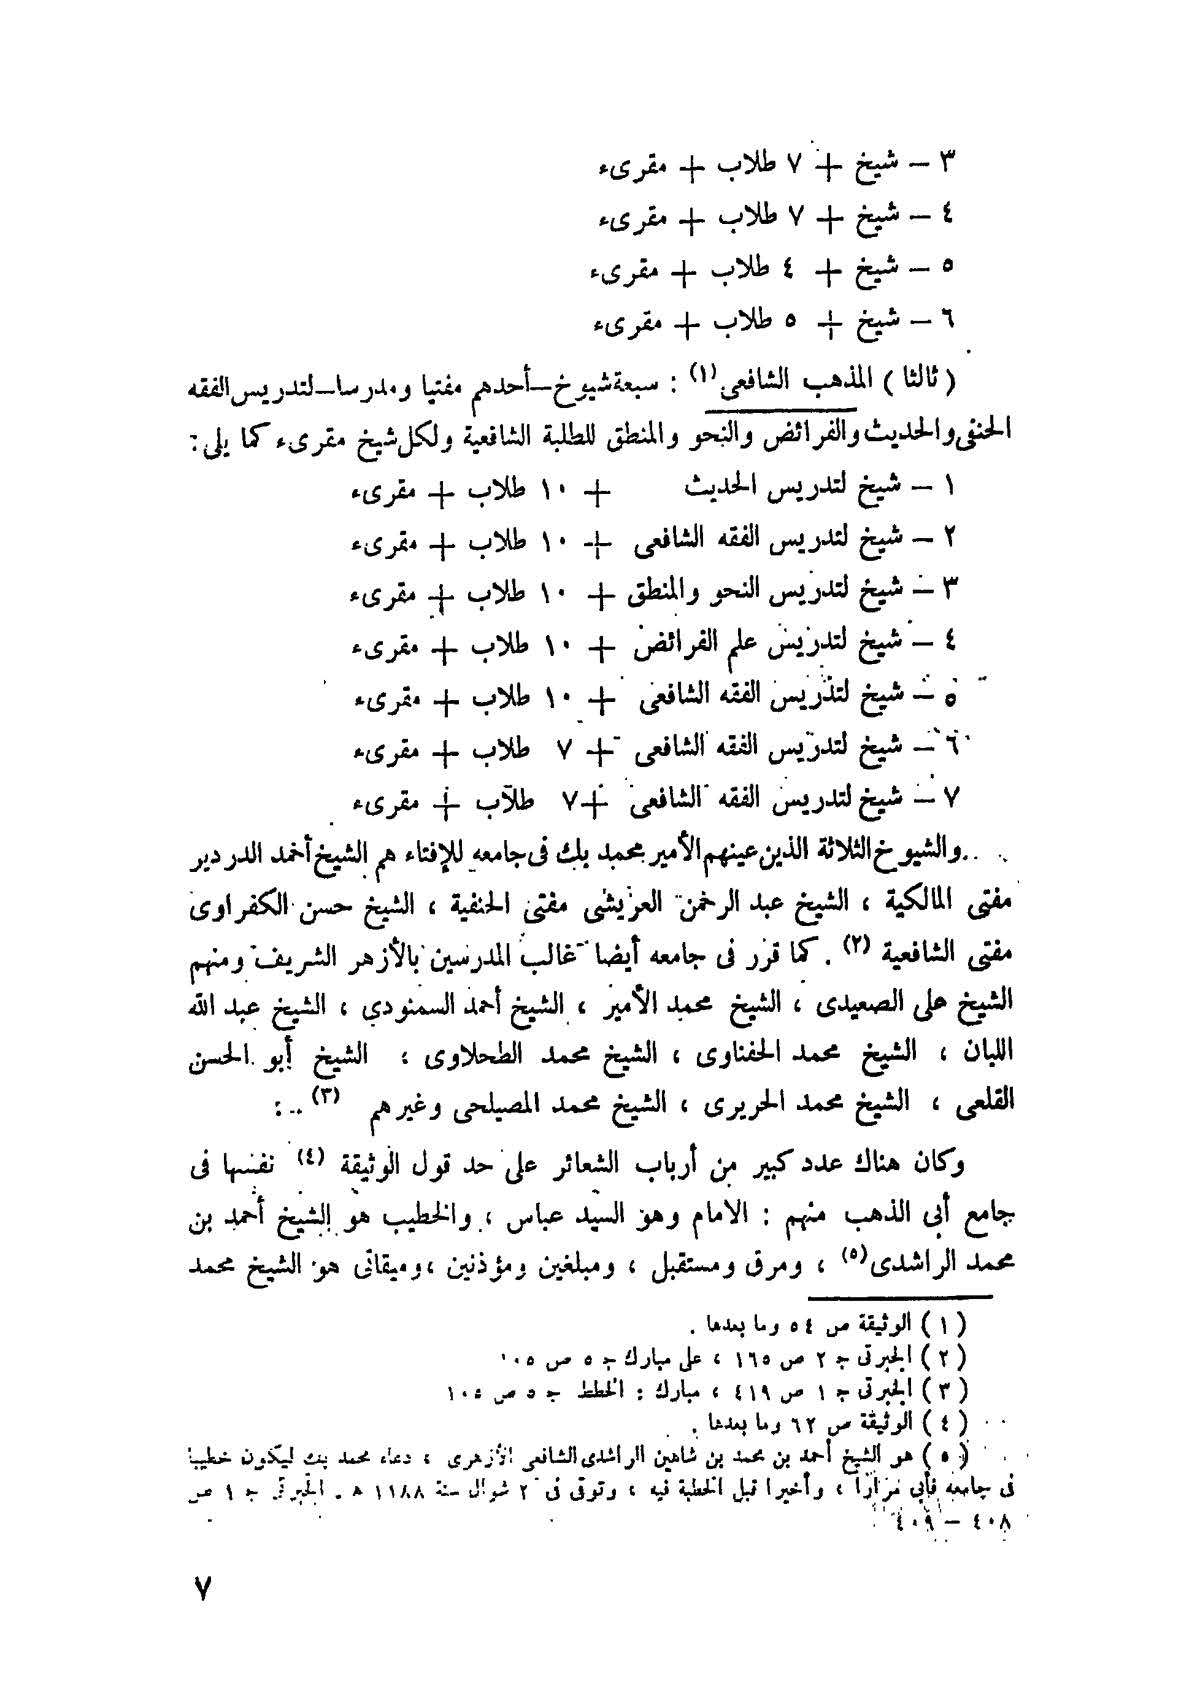 ٣ — شيخ + ٧ طلاب + مقرىء
٤ — شيخ + ٧ طلاب + مقرىء
٥ — شيخ + ٤ طلاب + مقرىء
٦ — شيخ + ٥ طلاب + مقرىء
( ثالثا ) المذهب الشافعى (١) : سبعة شيوخ — أحدهم مفتيا ومدرسا — لتدريس الفقه
الحنفى والحديث والفرائض والنحو والمنطق للطلبة الشافعية ولكل شيخ مقرىء كما يلى :
١ — شيخ لتدريس الحديث + ١٠ طلاب + مقرىء
٢ — شيخ لتدريس الفقه الشافعى + ١٠ طلاب + مقرىء
٣ — شيخ لتدريس النحو والمنطق + ١٠ طلاب + مقرىء
٤ — شيخ لتدريس علم الفرائض + ١٠ طلاب + مقرىء
٥ — شيخ لتدريس الفقه الشافعى + ١٠ طلاب + مقرىء
٦ — شيخ لتدريس الفقه الشافعى + ٧ طلاب + مقرىء
٧ — شيخ لتدريس الفقه الشافعى + ٧ طلاب + مقرىء
والشيوخ الثلاثة الذين عينهم الأمير محمد بك فى جامعه للإفتاء هم الشيخ أحمد الدردير
مفتى المالكية ، الشيخ عبد الرحمن العريشى مفتى الحنفية ، الشيخ حسن الكفراوى
مفتى الشافعية (٢) . كما قرر فى جامعه أيضا غالب المدرسين بالأزهر الشريف ومنهم
الشيخ على الصعيدى ، الشيخ محمد الأمير ، الشيخ أحمد السمنودى ، الشيخ عبد الله
اللبان ، الشيخ محمد الحفناوى ، الشيخ محمد الطحلاوى ، الشيخ أبو الحسن
القلعى ، الشيخ محمد الحريرى ، الشيخ محمد المصيلحى وغيرهم (٣) .. :
وكان هناك عدد كبير من أرباب الشعائر على حد قول الوثيقة (٤) نفسها فى
جامع أبى الذهب منهم : الامام وهو السيد عباس ، والخطيب هو الشيخ أحمد بن
محمد الراشدى (٥) ، ومرق ومستقبل ، ومبلغين ومؤذنين ، وميقاتى هو الشيخ محمد
( ١ ) الوثيقة ص ٥٤ وما بعدها .
( ٢ ) الجبرتى ج ٢ ص ١٦٥ ، على مبارك ج ٥ ص ١٠٥
( ٣ ) الجبرتى ج ١ ص ٤١٩ ، مبارك : الخطط ج ٥ ص ١٠٥
( ٤ ) الوثيقة ص ٦٢ وما بعدها .
( ٥ ) هو الشيخ أحمد بن محمد بن شاهين الراشدى الشافعى الأزهرى ، دعاه محمد بك ليكون خطيبا
فى جامعه فأبى مرارا ، وأخيرا قبل الخطبة فيه ، وتوفى فى ٢ شوال سنة ١١٨٨ هـ . الجبرتى ج ١ ص
٤٠٨ — ٤٠٩
٧